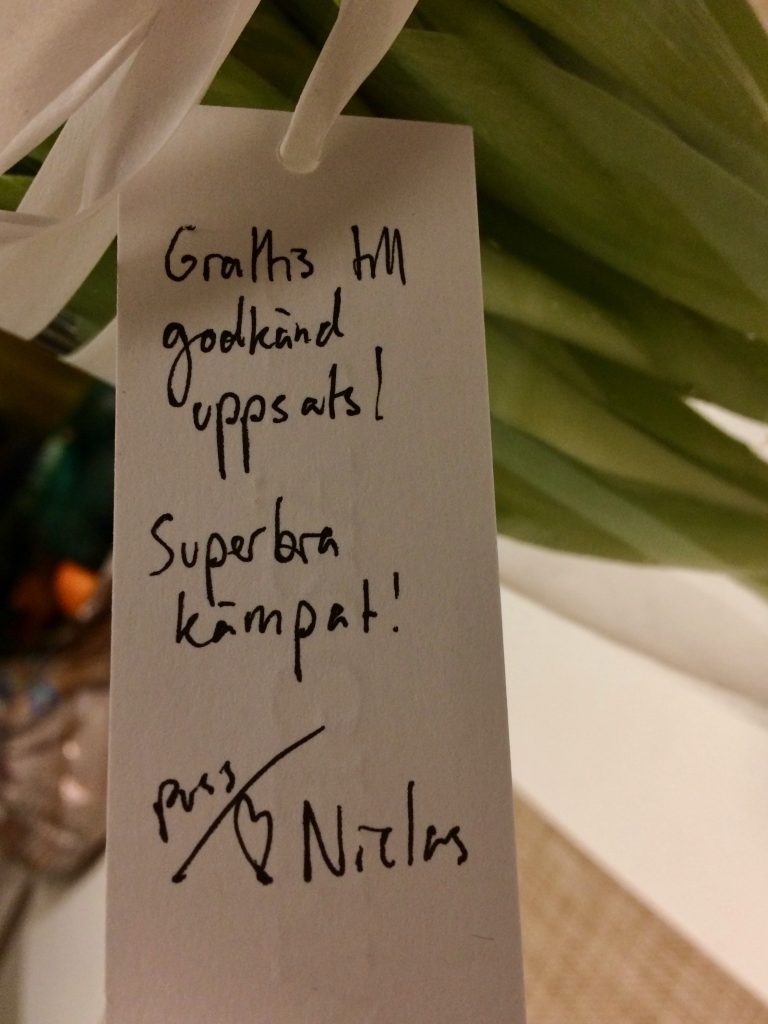 Grattis till
godkänd
uppsats!
Superbra
kämpat!
puss
/♡ Niclas